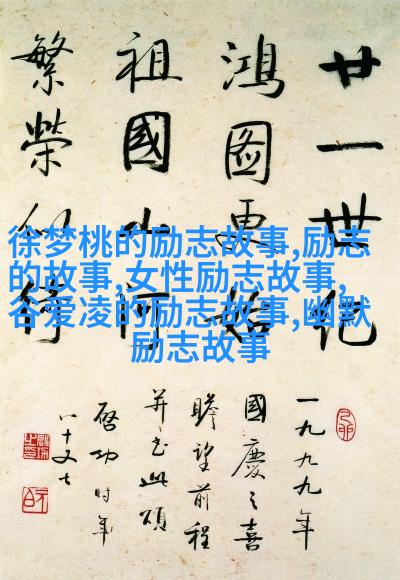 廿一世纪
鸿图更始
祖國山河
繁榮
一九九九年
國慶之喜
瞻望前程
并书此颂
启功时年
八十又七
徐梦桃的励志故事,励志
的故事,女性励志故事,
谷爱凌的励志故事,幽默
励志故事